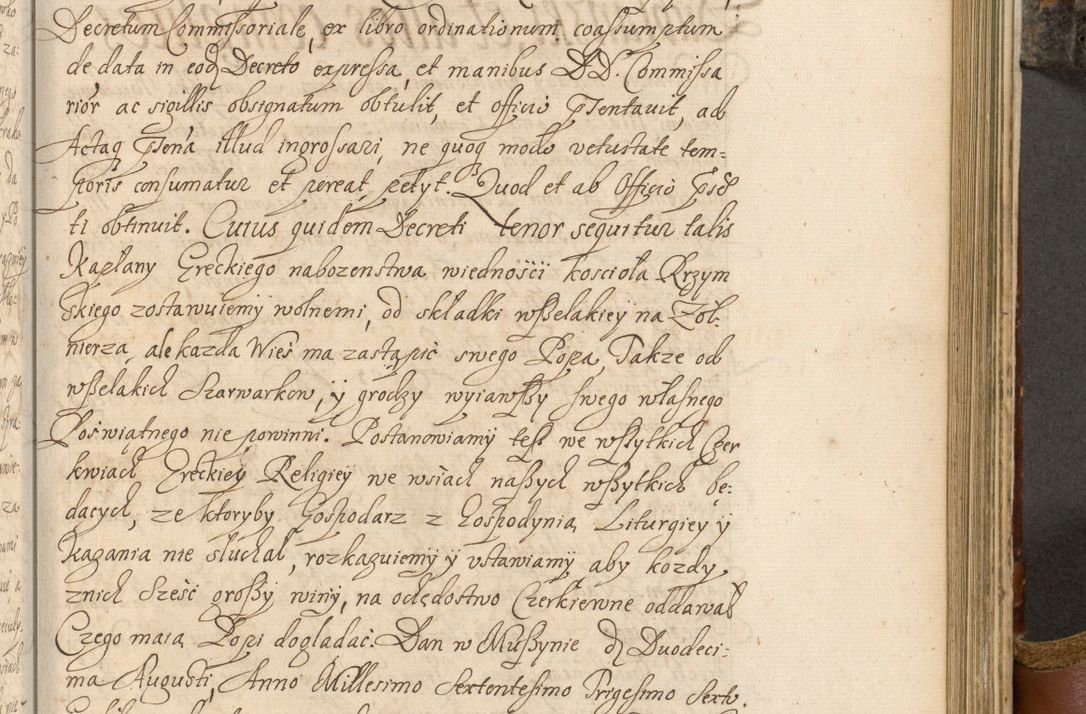 Decretum Commissoriale, ex libro ordinationum coassumptum
de data in eoq Decreto expressa, et manibus D.D. Commissa
rior ac sigillis obsignatum obtulit, et officio pntavit, ad
Actaq pntia illud ingrossari, ne quoq modo vetustate tem=
poris consumatur et pereat petyt. Quod et ab Officio psē
ti obtinuit. Cuius quidem Decreti tenor sequitur talis
Kapłany Greckiego nabozenstwa wiednośći kosciola Rzym
skiego zostawuiemy wolnemi, od składki wszelakiey na Zoł=
nierza, ale kazda Wieś ma zastąpić swego Popa, Takze od
wszelakich Szarwarkow, y grodzy wyiawszy swego własnego
Poswiątnego nie powinni. Postanowiamy tesz we wszytkich Czer
kwiach Greckiey Religiey we wsiach naszych wszytkich bę=
dących, ze ktoryby Gospodarz z Gospodynią Liturgiey y
kazania nie słuchał, rozkazuiemy y ustawiamy aby kozdy
znich Sześć groszy winy, na ochędostwo Czerkiewne oddawał
Czego maią Popi dogladać. Dan w Muszynie d Duodeci=
ma Augusti, Anno Millesimo Sextentesimo Trigesimo Sexto.